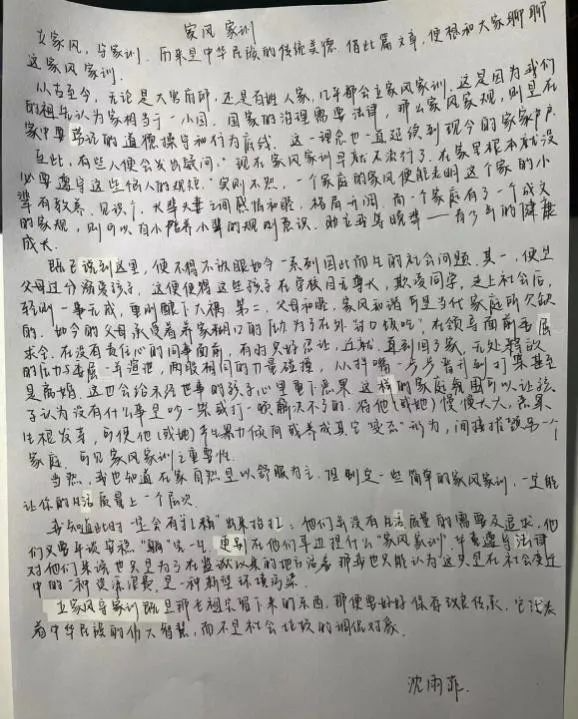 家风家训
立家风,与家训,而来是中华民族的传统美德。借此篇文章,便想和大家聊聊
这家风家训。
从古至今,无论是大宅府邸,还是百姓人家,几乎都会立家风家训。这是因为我们
的祖先认为家相当于一小国,国家的治理需要法律,那么家风家规,则是在
家中要常说的道德操守和行为底线。这一理念也一直延续到现今的家家户户。
在此,有些人便会发出疑问:“现在家风家训早就不流行了,在家里根本就没
必要遵守这些俗人的规矩。”实则不然,一个家庭的家风便能表明这个家的小
辈有教养,见识广,大辈夫妻之间感情和睦,格局开阔。而一个家庭有了一个成文
的家规,则可以自小培养小辈的规则意识,助立
成长。
既已说到这里,便不得不提眼如今一系列因此而生的社会问题。其一,便是
父母过分溺爱孩子,这使得这些孩子在学校目无尊长,欺凌同学,走上社会后,
轻则一事无成,重则酿下大祸。第二,父母和睦,家风和谐可是当代家庭所欠缺
的。如今的父母承受着养家糊口的压力,为了在外“讨口饭吃”,在领导面前委屈
求全,在没有责任心的同事面前,有时只好忍让,迁就,直到回了家,无处释放
的压力与委屈一并宣泄,两股相同的力量碰撞,从拌嘴一步步晋升到打架甚至
是离婚。这也会给未经世事的孩子心里种下恶果,这样的家庭氛围可以让孩
子认为没有什么事是吵一架或打一顿解决不了的。待他(或她)慢慢长大,恶果
生根发芽,可使他(或她)产生暴力倾向或养成其它“变态”行为,间接摧毁另一个
家庭,可见家风家训之重要性。
当然,我也知道在家自然是以舒服为主,但制定一些简单的家风家训,一定能
让你的生活质量上一个层次。
我知道此时一定会有“杠精”出来抬杠:他们并没有生活质量的需要及追求,他
们只要平淡安稳“躺”完一生,更别在他们耳边提什么“家风家训”,毕竟遵守法律
对他们来说也只是为了在监狱以外的地方活着,那我也只能认为这只是在社会变迁
中的一种资源浪费,是一种新型环境污染。
立家风守家训既是那老祖宗留下来的东西,那便要好好保存改良传承,它代表
着中华民族的伟大智慧,而不是社会垃圾的调侃对象。
沈雨菲